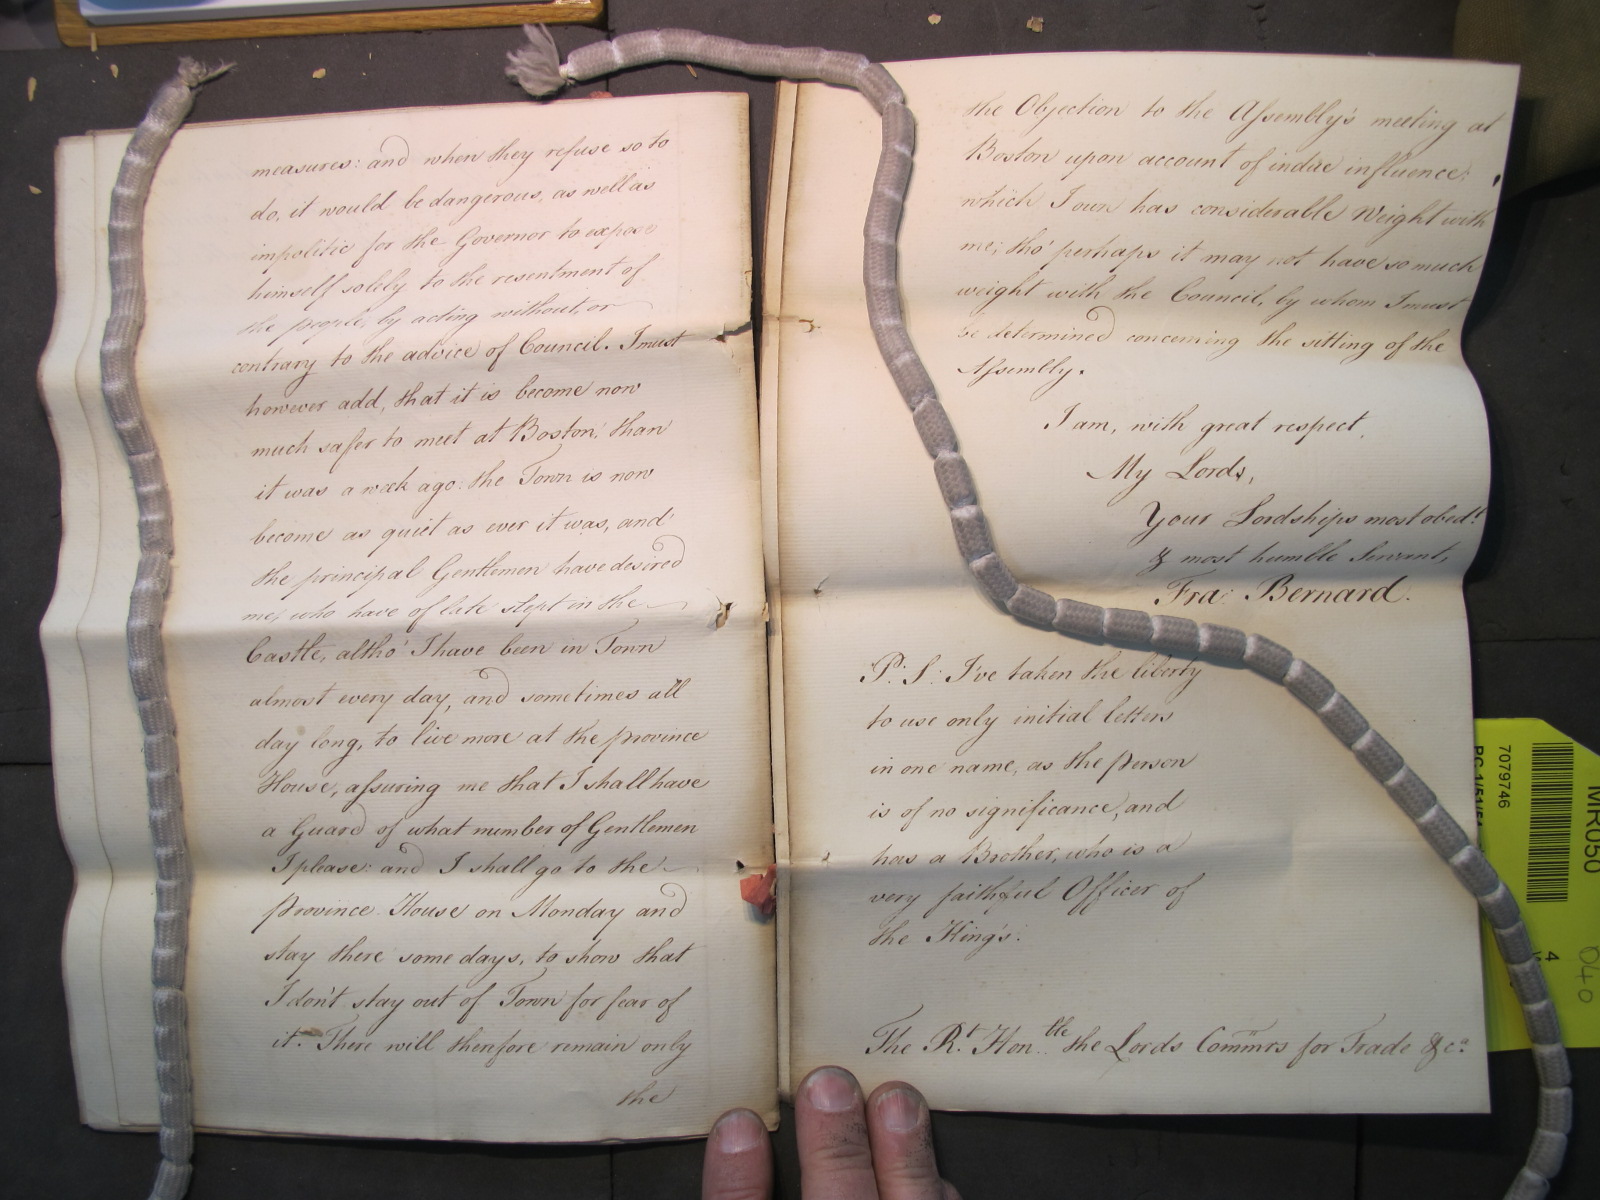 measures: and when they refuse so to
do, it would be dangerous, as well as
impolitic for the Governor to expose
himself solely to the resentment of
the people, by acting without, or
contrary to the advice of Council. I must
however add, that it is become now
much safer to meet at Boston, than
it was a week ago: the Town is now
become as quiet as ever it was, and
the principal Gentlemen have desired
me, who have of late slept in the
Castle, altho' I have been in Town
almost every day, and sometimes all
day long, to live more at the province
House, assuring me that I shall have
a Guard of what number of Gentlemen
I please: and I shall go to the
province House on Monday and
stay there some days, to show that
I don't stay out of Town for fear of
it. There will therefore remain only
the
the Objection to the Assembly's meeting at
Boston upon account of indue influence;
which I own has considerable Weight with
me; tho' perhaps it may not have so much
weight with the Council, by whom I must
be determined concerning the sitting of the
Assembly.
I am, with great respect,
My Lords,
Your Lordships most obedt.
& most humble Servant,
Fra: Bernard.
P: S: I've taken the liberty
to use only initial letters
in one name, as the person
is of no significance, and
has a Brother, who is a
very faithful Officer of
the King's.
The Rt. Honble the Lords Commrs for Trade &ca.
7079746
MR050
4
040